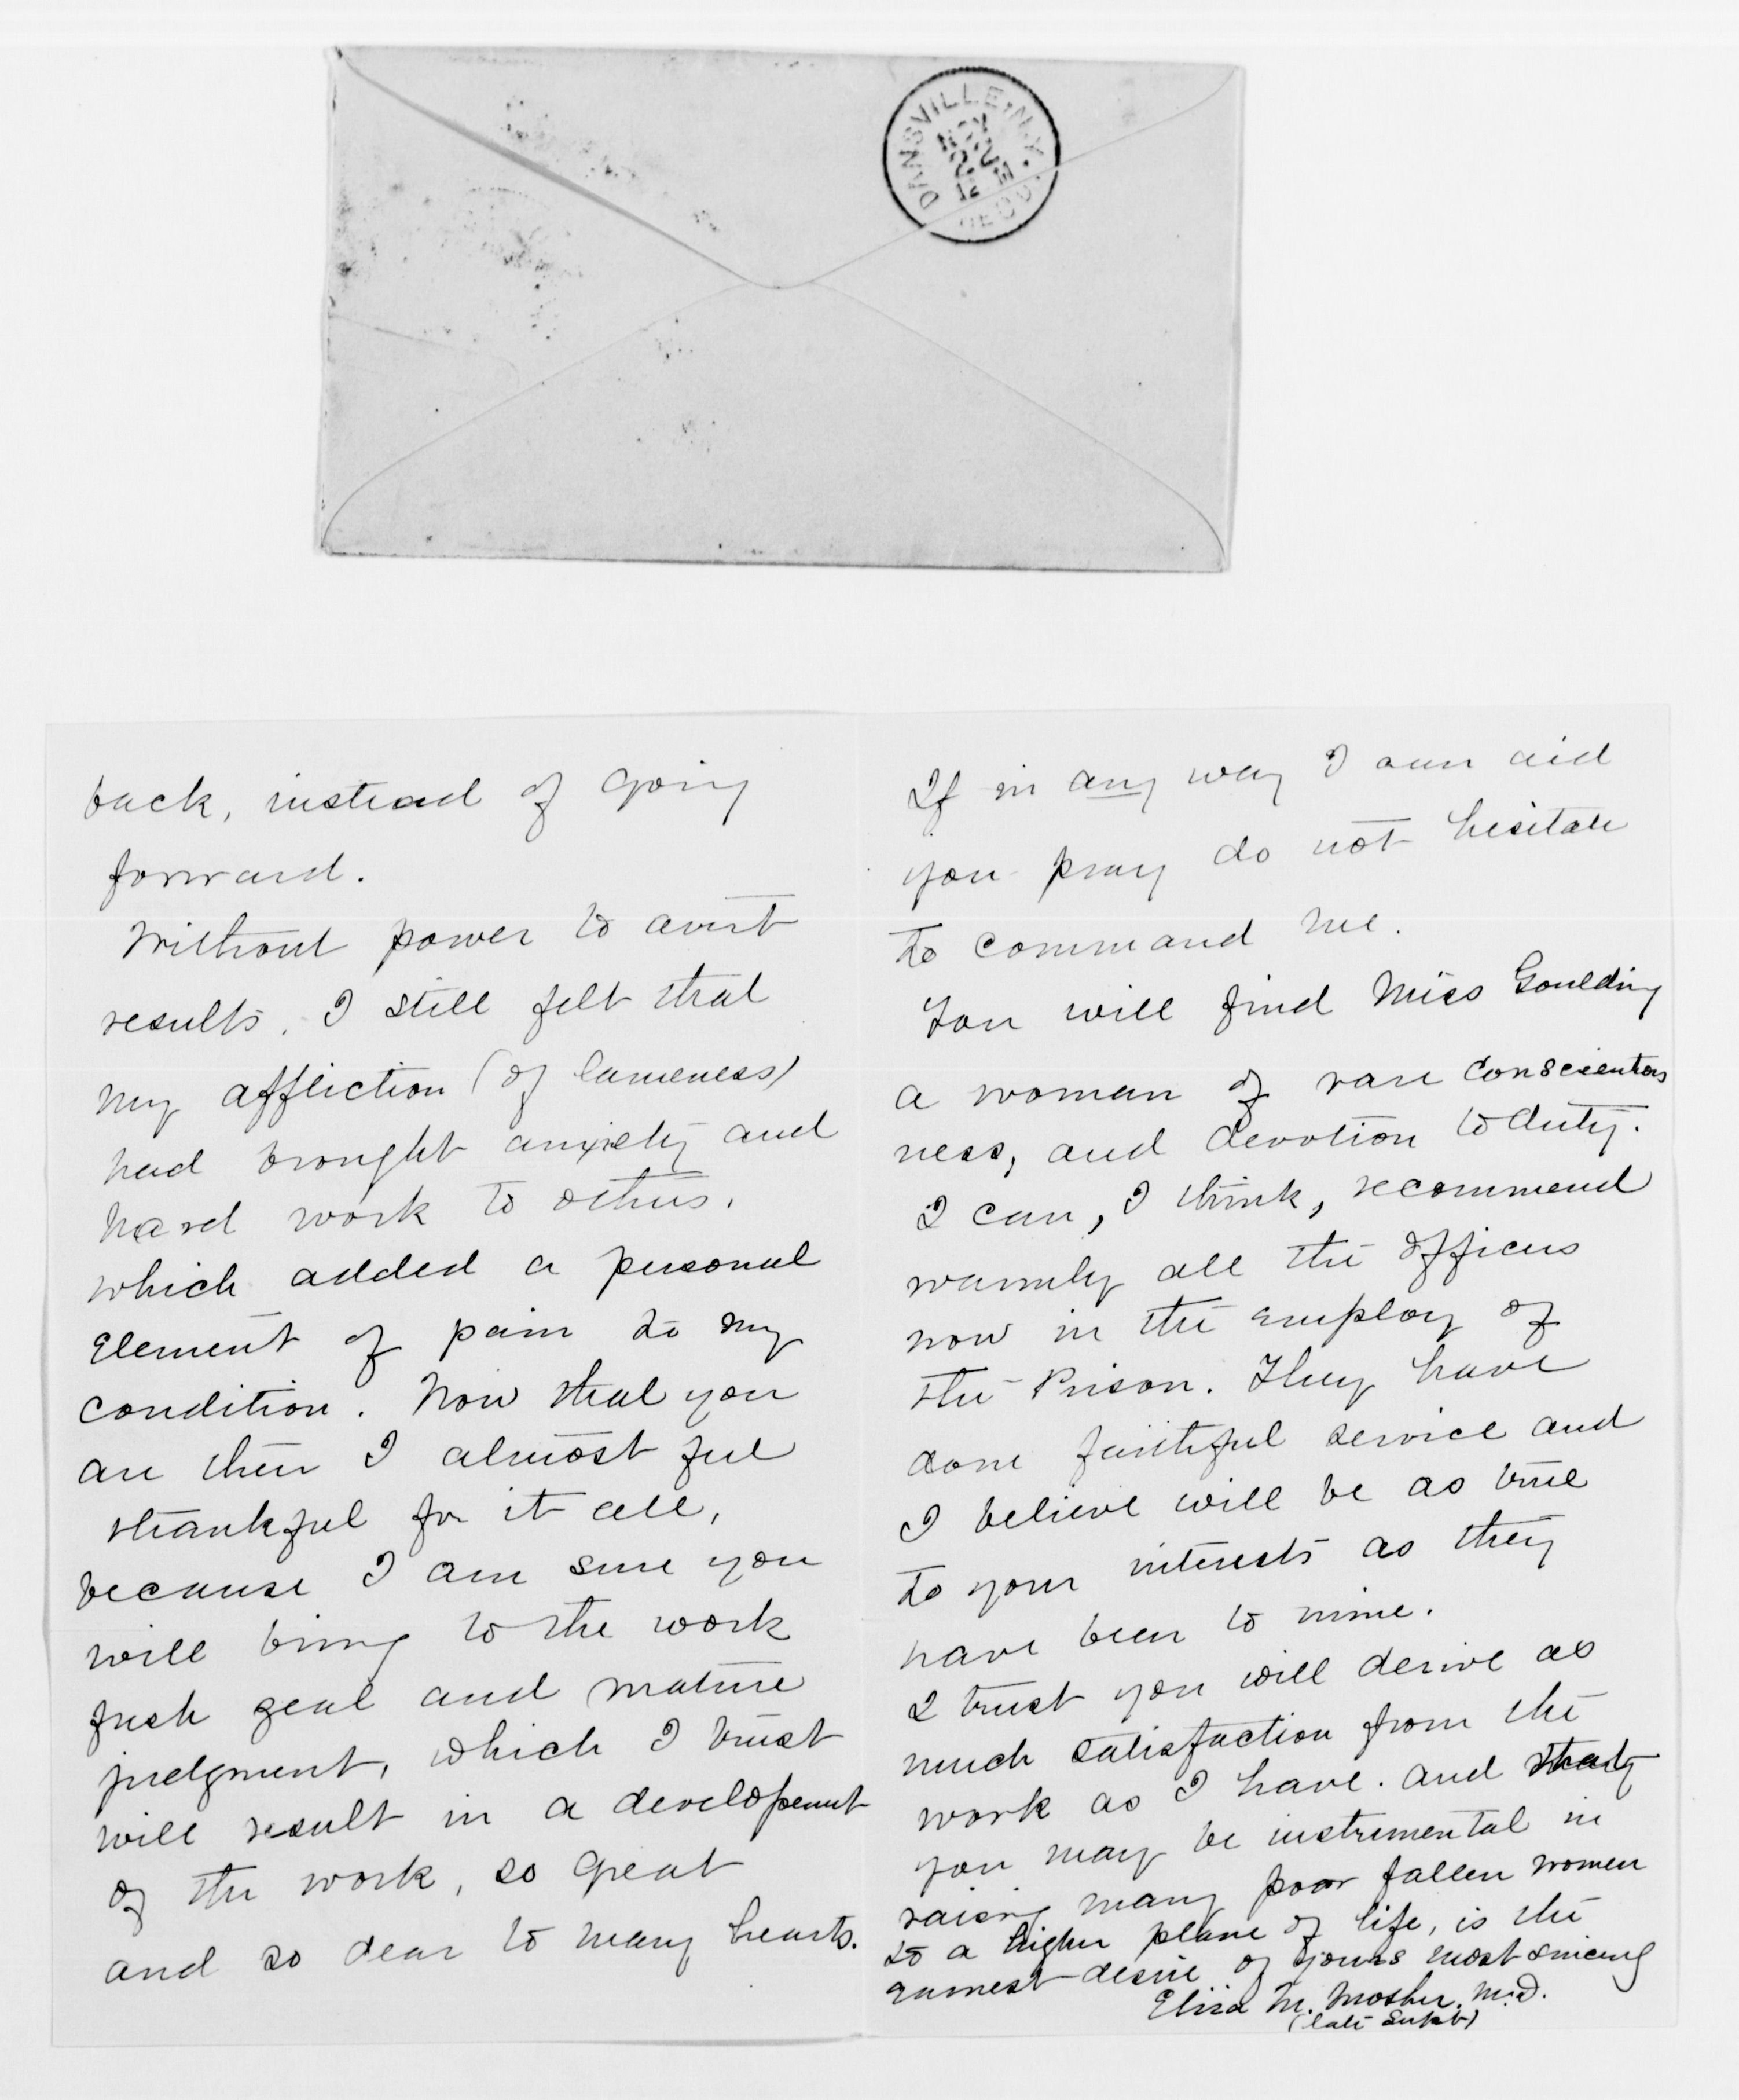 DANSVILLE, N.Y.
REC'D.
back, instead of going
forward.
Without power to avert
results, I still felt that
my affliction (of lameness)
had brought anxiety and
hard work to others,
which added a personal
element of pain to my
condition. Now that you
are there I almost feel
thankful for it all,
because I am sure you
will bring to the work
fresh zeal and mature
judgment, which I trust
will result in a development
of the work, so great
and so dear to many hearts.
If in any way I can aid
you pray do not hesitate
to command me.
You will find Miss Goulding
a woman of rare conscientious
ness, and devotion to duty.
I can, I think, recommend
warmly all the officers
now in the employ of
the Prison. They have
done faithful service and
I believe will be as true
to your interests as they
have been to mine.
I trust you will derive as
much satisfaction from the
work as I have. and that
you may be instrumental in
raising many poor fallen women
to a higher plane of life, is the
earnest desire of yours most sincerely
Eliza M. Mosher. M.D.
(late Supt)